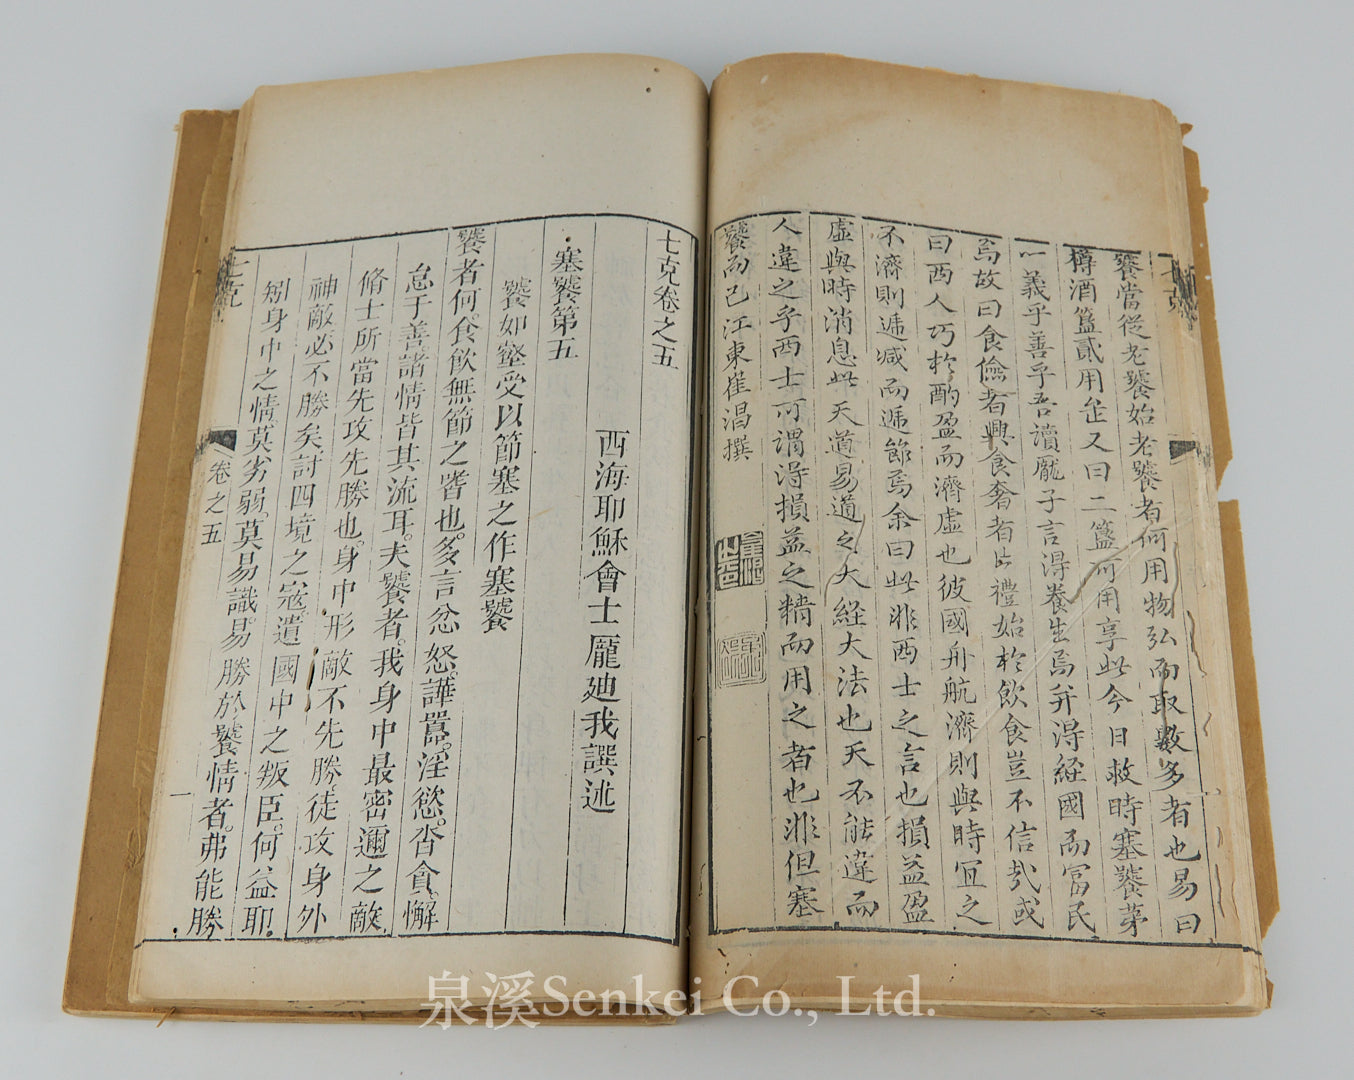 饕當從老饕始老饕者何用物弘而取數多者也易曰
樽酒簋貳用缶又曰二簋可用享此今日救時塞饕苐
一義乎善乎吾讀龎子言得養生焉并得経國而富民
焉故曰食儉者興食奢者亡禮始於飲食豈不信㢤或
曰西人巧於酌盈而濟虚也彼國舟航濟則與時宜之
不濟則遞减而遞節焉余曰此非西士之言也損益盈
虛與時消息此天道易道之大経大法也天不能違而
人違之乎西士可謂淂損益之精而用之者也非但塞
饕而已江東崔淐撰
七克卷之五
西海耶穌會士龎廸我譔述
塞饕第五
饕如壑受以節塞之作塞饕
饕者何。食飲無節之嗜也。多言忿怒。譁囂。淫慾。吝貪。懈
怠于善。諸情皆其流耳。夫饕者。我身中最密邇之敵
脩士所當先攻先勝也。身中形敵不先勝。徒攻身外
神敵必不勝矣。討四境之寇。遺國中之叛臣。何益耶。
矧身中之情。莫劣弱。莫易識。易勝於饕情者。弗能勝
七克
卷之五
一
泉溪Senkei Co., Ltd.